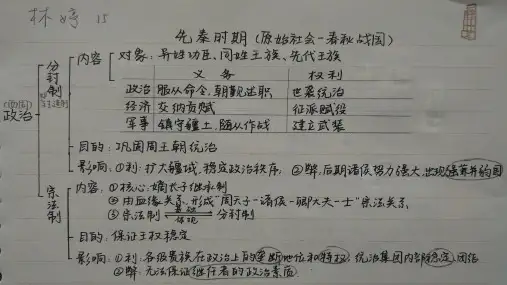 林婷 15
先秦时期(原始社会-春秋战国)
(西周)
政治
分封制
内容
对象:异姓功臣、同姓王族、先代王族
义务 权利
政治 服从命令,朝觐述职 世袭统治
经济 交纳贡赋 征派赋役
军事 镇守疆土,随从作战 建立武装
目的:巩固周王朝统治
影响:①利:扩大疆域,稳定政治秩序 ②弊:后期诸侯势力强大,出现强国并的国
宗法制
内容:①核心:嫡长子继承制
②由血缘关系,形成"周天子-诸侯-卿大夫-士"宗法关系
③宗法制 分封制
目的:保证王权稳定
影响:①利:各级贵族在政治上的垄断地位和特权;统治集团内部稳定、团结
②弊:无法保证继任者的政治素质